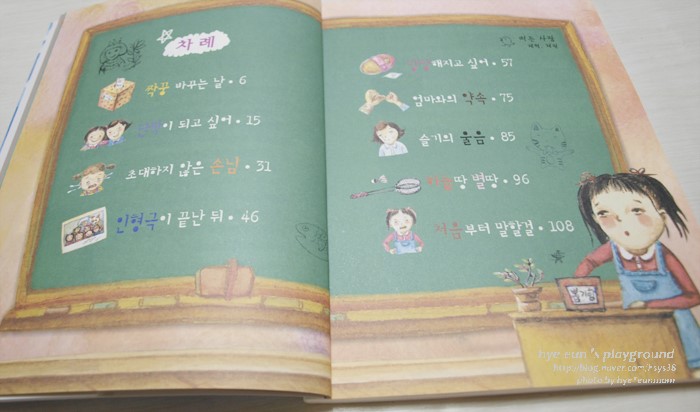 차례
짝꿍 바꾸는 날 • 6
이 되고 싶어 • 15
초대하지 않은 손님 • 31
인형극이 끝난 뒤 • 46
해지고 싶어 • 57
엄마와의 약속 • 75
슬기의 울음 • 85
땅 별땅 • 96
처음부터 말할걸 • 108
bye eun's playground